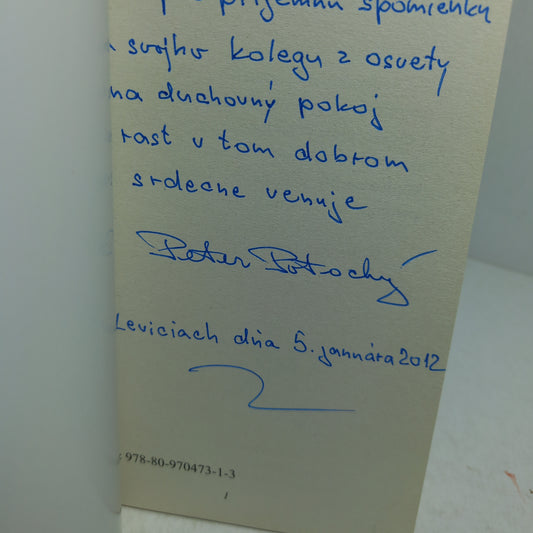 príjemnú spomienku
svojho kolegu z osvety
na duchovný pokoj
rast v tom dobrom
srdecne venuje
Peter Potochý
Leviciach dňa 5. januára 2012
: 978-80-970473-1-3